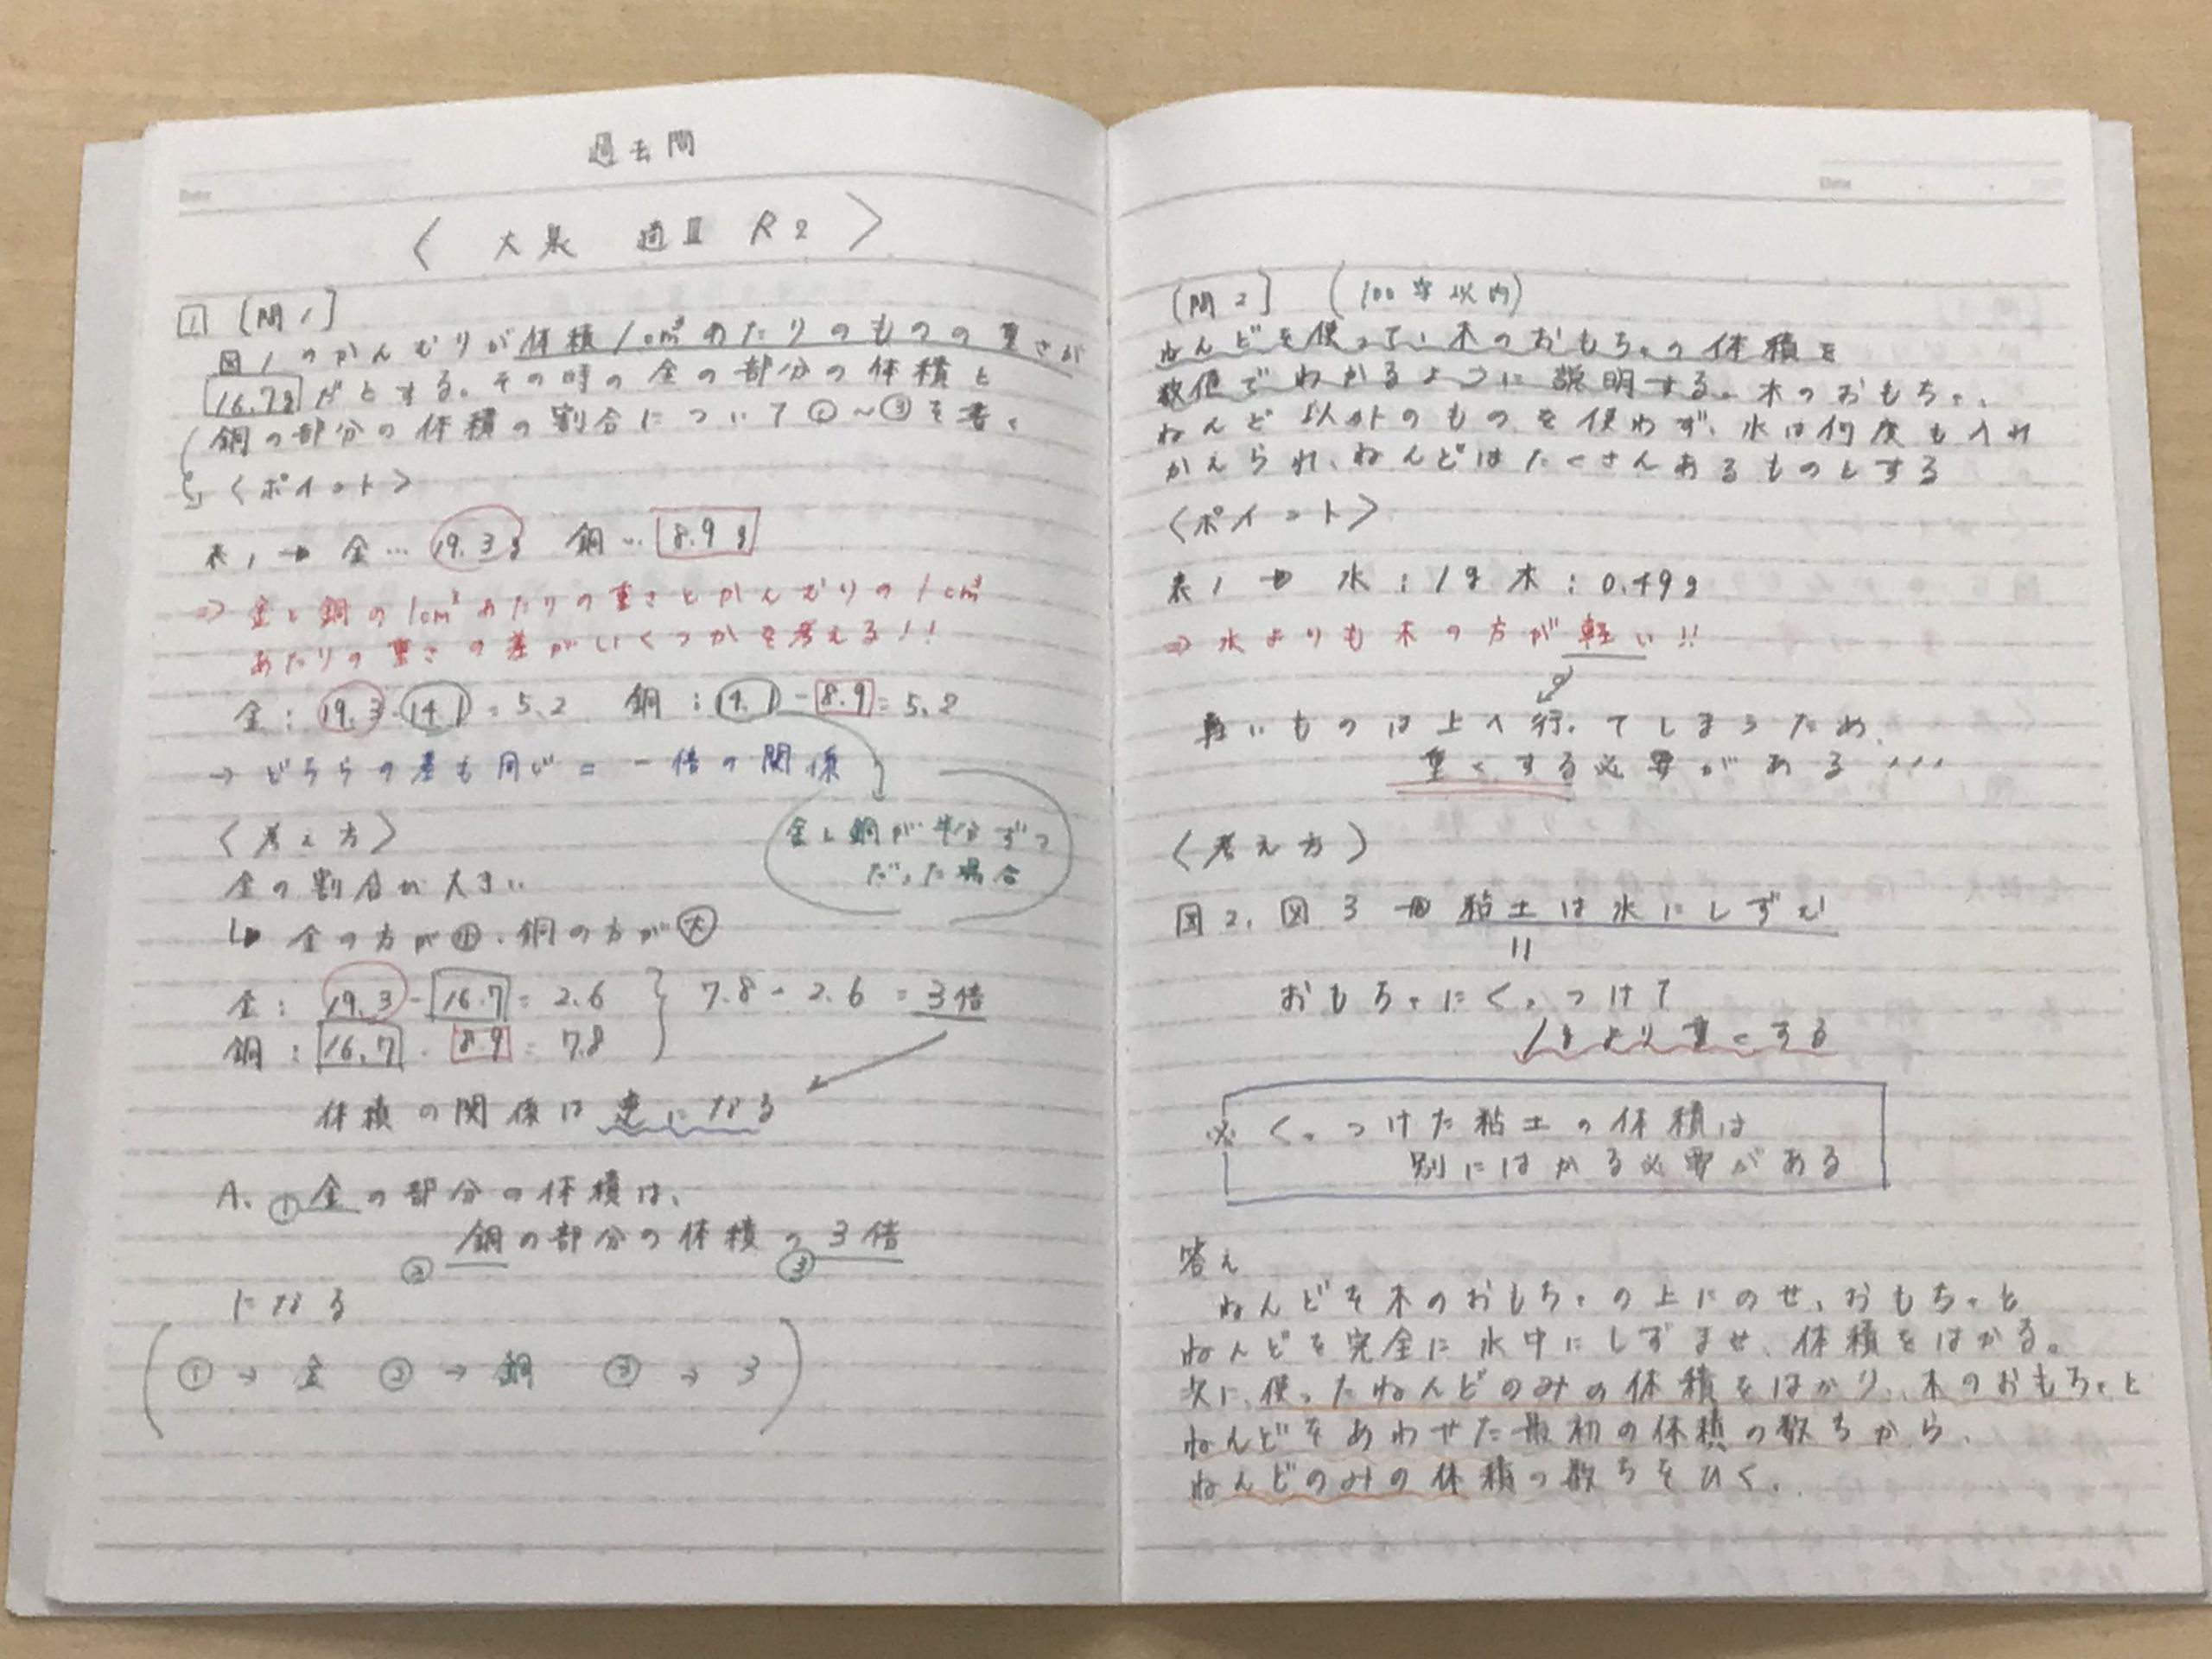 過去問
Date
〈 大泉 適Ⅲ R2 〉
1 [問1]
図1のかんむりが体積1cm³あたりのものの重さが
16.7gだとする。その時の金の部分の体積と
銅の部分の体積の割合について①~③を書く
〈ポイント〉
表1→金…19.3g 銅…8.9g
⇒金と銅の1cm³あたりの重さとかんむりの1cm³
あたりの重さの差がいくつかを考える!!
金:19.3-14.1=5.2 銅:14.1-8.9=5.2
→どちらの差も同じ=一倍の関係
金と銅が半分ずつ
だった場合
〈考え方〉
金の割合が大きい
↳金の方が小、銅の方が大
金:19.3-16.7=2.6 } 7.8÷2.6=3倍
銅:16.7-8.9=7.8
体積の関係は逆になる
A.①金の部分の体積は、
②銅の部分の体積の③3倍
になる
(①→金 ②→銅 ③→3)
Date
[問2] (100字以内)
ねんどを使って、木のおもちゃの体積を
数値でわかるように説明する。木のおもちゃ、
ねんど以外のものを使わず、水は何度も入れ
かえられ、ねんどはたくさんあるものとする
〈ポイント〉
表1→水:1g 木:0.49g
⇒水よりも木の方が軽い!!
軽いものは上へ行ってしまうため、
重くする必要がある...
〈考え方〉
図2,図3→粘土は水にしずむ
=
おもちゃにくっつけて
1gより重くする
※くっつけた粘土の体積は
別にはかる必要がある
答え
ねんどを木のおもちゃの上にのせ、おもちゃと
ねんどを完全に水中にしずませ、体積をはかる。
次に、使ったねんどのみの体積をはかり、木のおもちゃと
ねんどをあわせた最初の体積の数ちから、
ねんどのみの体積の数ちをひく。